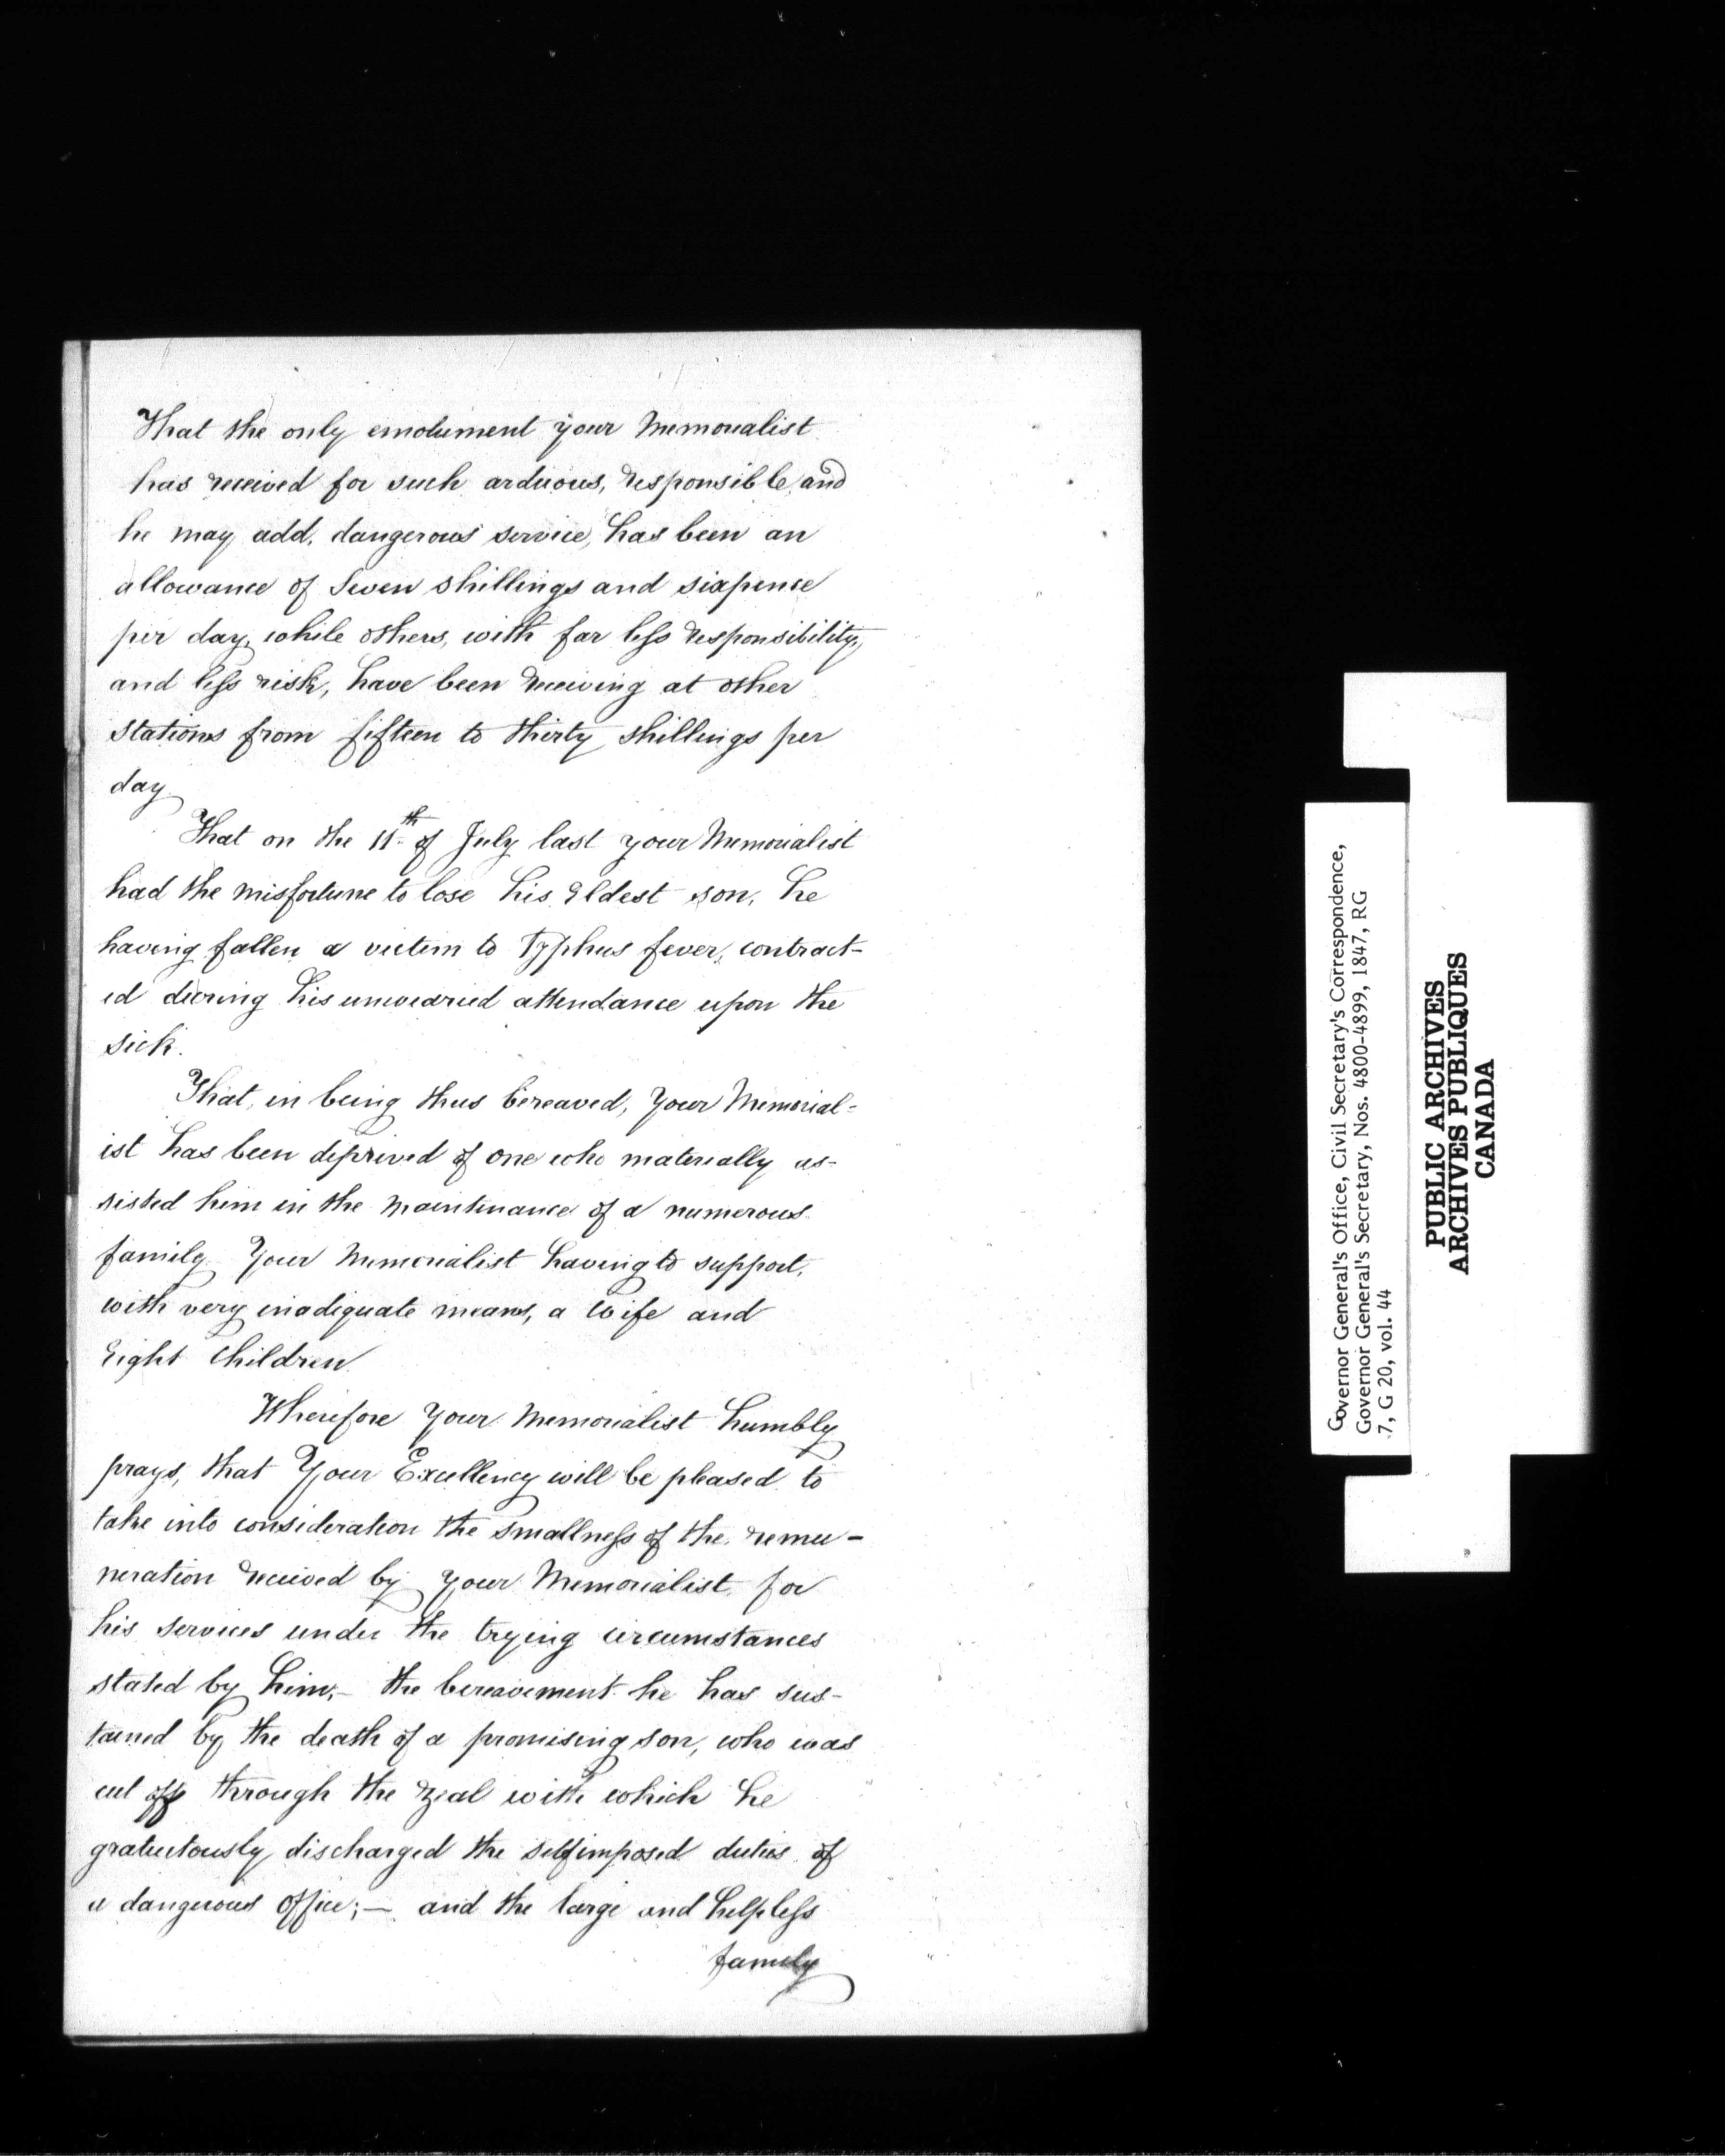 That the only emolument your Memorialist
has received for such arduous, responsible, and
he may add, dangerous service, has been an
allowance of Seven shillings and sixpence
per day, while others, with far less responsibility,
and less risk, have been receiving at other
stations from fifteen to thirty shillings per
day
That on the 11th of July last your Memorialist
had the misfortune to lose his Eldest son, he
having fallen a victim to Typhus fever, contract-
ed during his unwearied attendance upon the
sick.
That, in being thus bereaved, Your Memorial-
ist has been deprived of one who materially as-
sisted him in the maintinance of a numerous
family Your Memorialist having to support,
with very inadequate means, a Wife and
Eight Children.
Wherefore Your Memorialist humbly
prays, that Your Excellency will be pleased to
take into consideration the smallness of the remu-
neration received by Your Memorialist for
his services under the trying circumstances
stated by him,- the bereavement he has sus-
tained by the death of a promising son, who was
cut off through the zeal with which he
gratuitously discharged the selfimposed duties of
a dangerous Office;- and the large and helpless
family
Governor General's Office, Civil Secretary's Correspondence,
Governor General's Secretary, Nos. 4800-4899, 1847, RG
7, G 20, vol. 44
PUBLIC ARCHIVES
ARCHIVES PUBLIQUES
CANADA